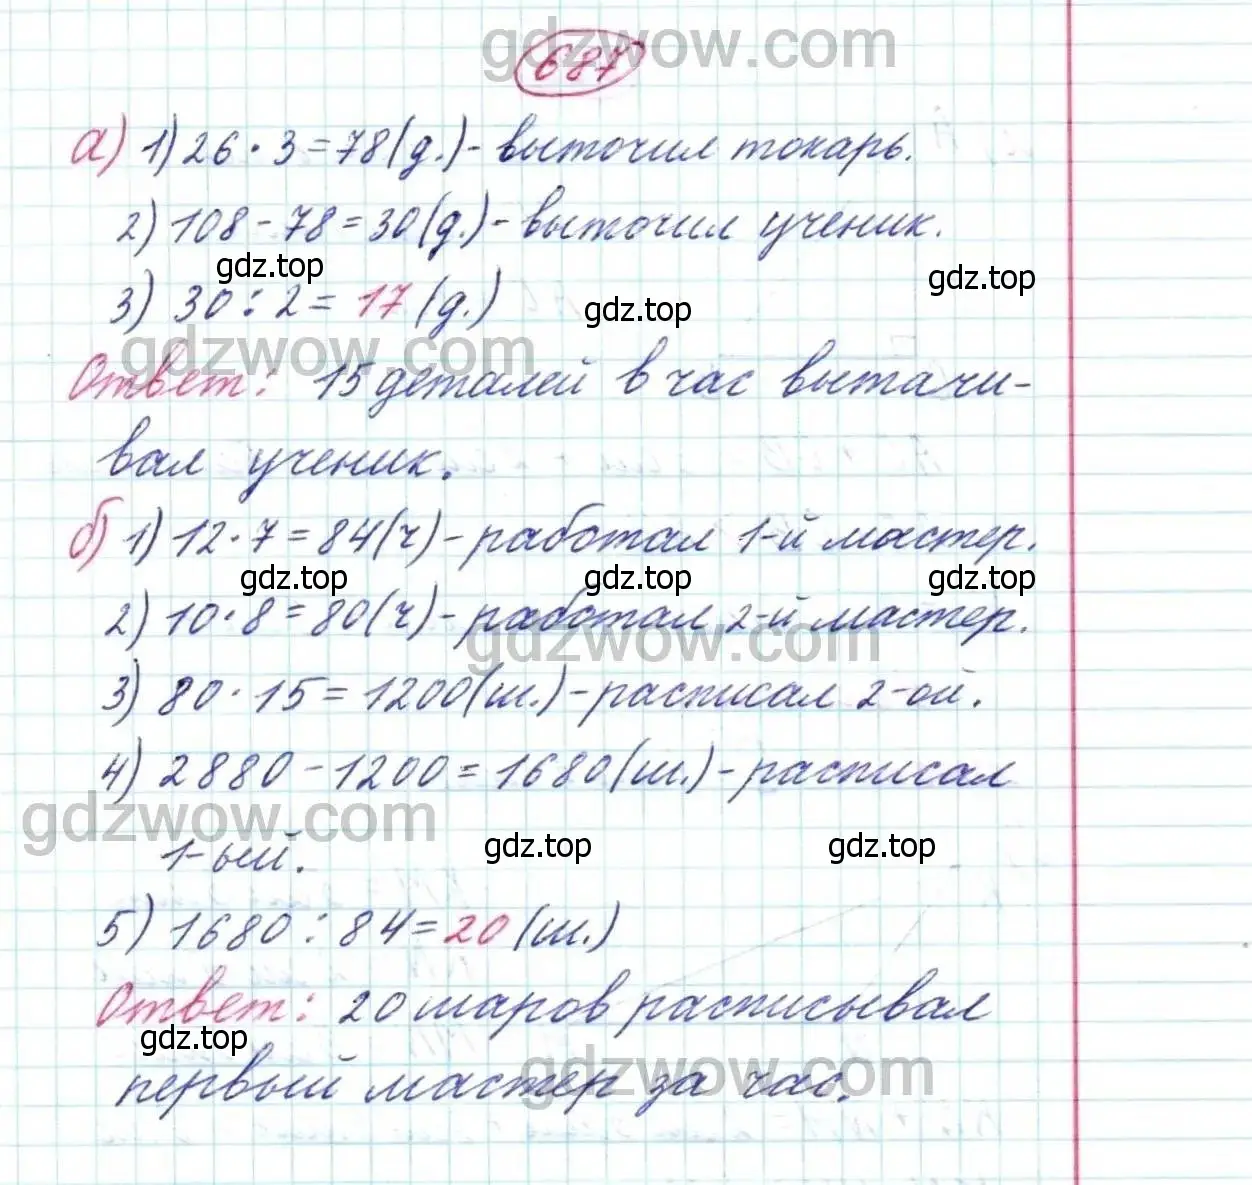 gdzwow.com
687
а) 1) 26 · 3 = 78 (д.) - выточил токарь.
2) 108 - 78 = 30 (д.) - выточил ученик.
gdz.top gdz.top
3) 30 : 2 = 17 (д.) gdz.top
gdzwow.com
Ответ: 15 деталей в час вытачи-
вал ученик.
б) 1) 12 · 7 = 84 (ч) - работал 1-й мастер.
gdz.top gdz.top gdz.top
2) 10 · 8 = 80 (ч) - работал 2-й мастер.
gdzwow.com
3) 80 · 15 = 1200 (ш.) - расписал 2-ой.
4) 2880 - 1200 = 1680 (ш.) - расписал
gdzwow.com
1-ый. gdz.top gdz.top
5) 1680 : 84 = 20 (ш.)
Ответ: 20 шаров расписывал
gdz.top
gdzwow.com
первый мастер за час.